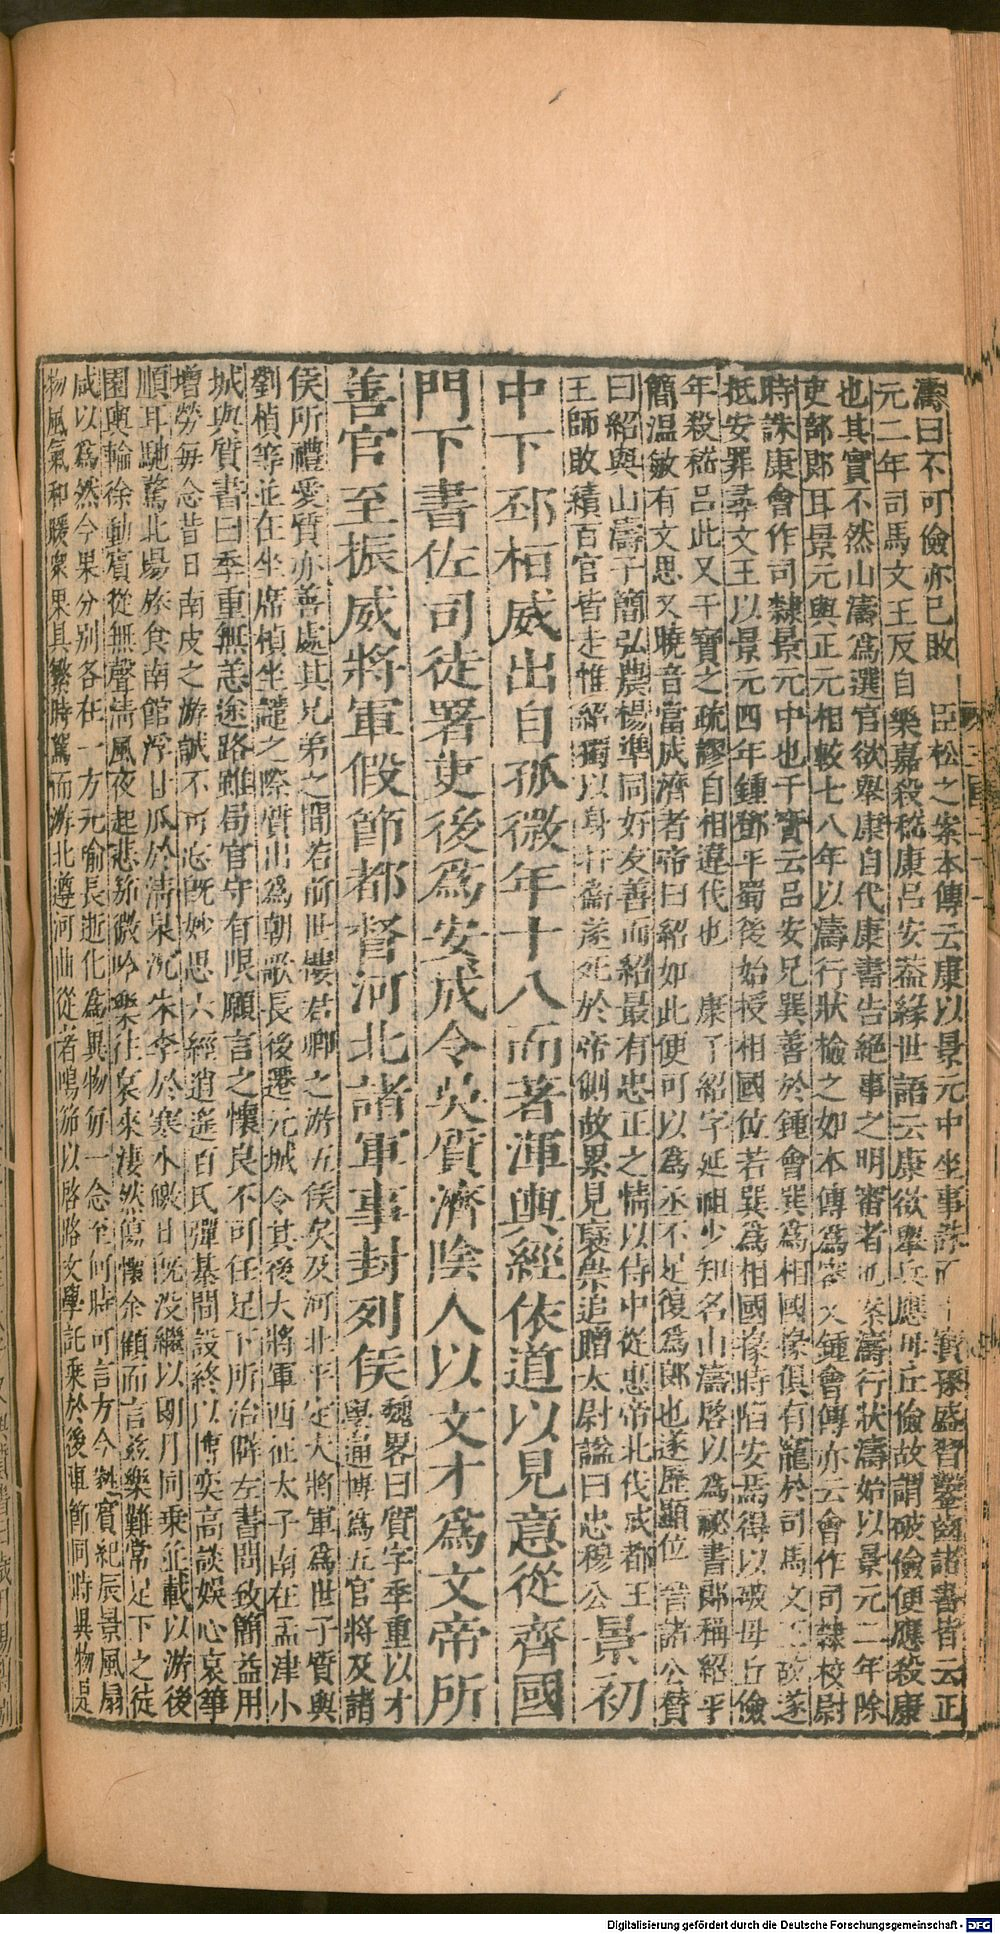 濤曰不可儉亦已敗 臣松之案本傳云康以景元中坐事誅而干寳孫盛習鑿齒諸書皆云正
元二年司馬文王反自樂嘉殺嵇康呂安蓋緣世語云康欲舉兵應毋丘儉故謂破儉便應殺康
也其實不然山濤爲選官欲舉康自代康書告絕事之明審者也案濤行狀濤始以景元二年除
吏部郎耳景元與正元相較七八年以濤行狀檢之如本傳爲審又鍾會傳亦云會作司隸校尉
時誅康會作司隸景元中也干寳云呂安兄巽善於鍾會巽爲相國掾俱有寵於司馬文王故遂
抵安罪尋文王以景元四年鍾鄧平蜀後始授相國位若巽爲相國掾時陷安焉得以破毋丘儉
年殺嵇呂此又干寳之疏謬自相違伐也 康子紹字延祖少知名山濤啓以爲祕書郎稱紹平
簡温敏有文思又曉音當成濟者帝曰紹如此便可以爲丞不足復爲郎也遂歷顯位 晉諸公賛
曰紹與山濤子簡弘農楊準同好友善而紹最有忠正之情以侍中從惠帝北伐成都王
王師敗績百官皆走惟紹獨以身扞衞遂死於帝側故累見襃崇追贈太尉謚曰忠穆公 景初
中下邳桓威出自孤微年十八而著渾輿經依道以見意從齊國
門下書佐司徒署吏後爲安成令吳質濟陰人以文才爲文帝所
善官至振威將軍假節都督河北諸軍事封列侯 魏畧曰質字季重以才學通博爲五官將及諸
侯所禮愛質亦善處其兄弟之間若前世樓君卿之游五侯矣及河北平定大將軍爲世子質與
劉楨等並在坐席楨坐譴之際質出爲朝歌長後遷元城令其後大將軍西征太子南在孟津小
城與質書曰季重無恙途路雖局官守有限願言之懷良不可任足下所治僻左書問致簡益用
增勞每念昔日南皮之游誠不可忘旣妙思六經逍遙百氏彈棊間設終以博奕高談娛心哀箏
順耳馳騖北場旅食南館浮甘瓜於清泉沉朱李於寒水皦日旣没繼以朗月同乘並載以游後
園輿輪徐動賓從無聲清風夜起悲笳微吟樂往哀來凄然傷懷余顧而言兹樂難常足下之徒
咸以爲然今果分別各在一方元瑜長逝化爲異物每一念至何時可言方今蕤賓紀辰景風扇
物風氣和暖衆果具繁時駕而游北遵河曲從者鳴笳以啓路文學託乘於後車節同時異物是
Digitalisierung gefördert durch die Deutsche Forschungsgemeinschaft - DFG